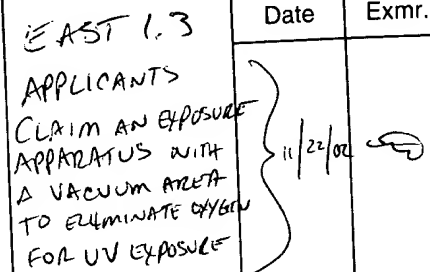 Date Exmr.
EAST 1.3
APPLICANTS
CLAIM AN EXPOSURE
APPARATUS WITH
A VACUUM AREA
TO ELIMINATE OXYGEN
FOR UV EXPOSURE
11/22/02